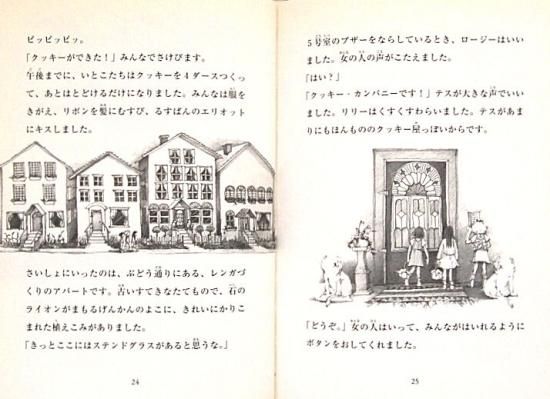 ピッピッピッ。
「クッキーができた！」みんなでさけびます。
午後までに、いとこたちはクッキーを4ダースつくっ
て、あとはとどけるだけになりました。みんなは服を
きがえ、リボンを髪にむすび、るすばんのエリオット
にキスしました。
さいしょにいったのは、ぶどう通りにある、レンガづ
くりのアパートです。古いすてきなたてもので、石の
ライオンがまもるげんかんのよこに、きれいにかりこ
まれた植えこみがありました。
「きっとここにはステンドグラスがあると思うな。」
24
5号室のブザーをならしているとき、ロージーはいい
ました。女の人の声がこたえました。
「はい？」
「クッキー・カンパニーです！」テスが大きな声でいい
ました。リリーはくすくすわらいました。テスがあま
りにもほんもののクッキー屋っぽいからです。
「どうぞ。」女の人はいって、みんながはいれるように
ボタンをおしてくれました。
25